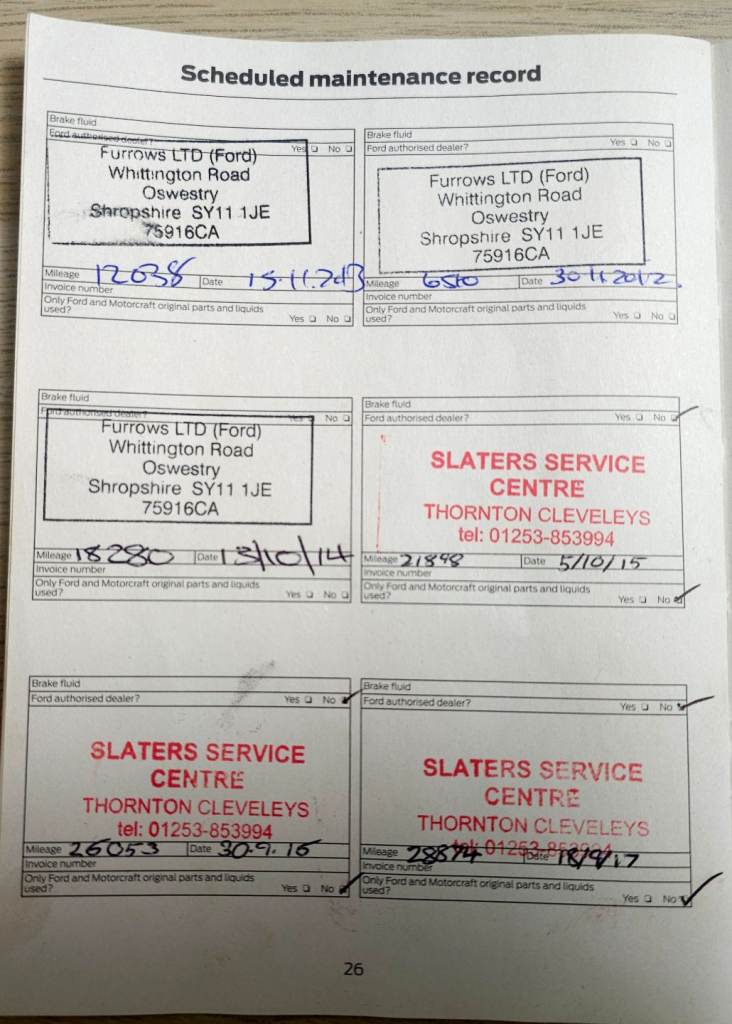 Scheduled maintenance record
Brake fluid
Ford authorised dealer?
Yes No
Furrows LTD (Ford)
Whittington Road
Oswestry
Shropshire SY11 1JE
75916CA
Mileage 12038 Date 15.11.2013
Invoice number
Only Ford and Motorcraft original parts and liquids
used? Yes No
Brake fluid
Ford authorised dealer? Yes No
Furrows LTD (Ford)
Whittington Road
Oswestry
Shropshire SY11 1JE
75916CA
Mileage 6510 Date 30.11.2012.
Invoice number
Only Ford and Motorcraft original parts and liquids
used? Yes No
Brake fluid
Ford authorised dealer? Yes No
Furrows LTD (Ford)
Whittington Road
Oswestry
Shropshire SY11 1JE
75916CA
Mileage 18280 Date 13/10/14
Invoice number
Only Ford and Motorcraft original parts and liquids
used? Yes No
Brake fluid
Ford authorised dealer? Yes No
SLATERS SERVICE
CENTRE
THORNTON CLEVELEYS
tel: 01253-853994
Mileage 21848 Date 5/10/15
Invoice number
Only Ford and Motorcraft original parts and liquids
used? Yes No
Brake fluid
Ford authorised dealer? Yes No
SLATERS SERVICE
CENTRE
THORNTON CLEVELEYS
tel: 01253-853994
Mileage 26053 Date 30.9.16
Invoice number
Only Ford and Motorcraft original parts and liquids
used? Yes No
Brake fluid
Ford authorised dealer? Yes No
SLATERS SERVICE
CENTRE
THORNTON CLEVELEYS
tel: 01253-853994
Mileage 28874 Date 18/9/17
Invoice number
Only Ford and Motorcraft original parts and liquids
used? Yes No
26